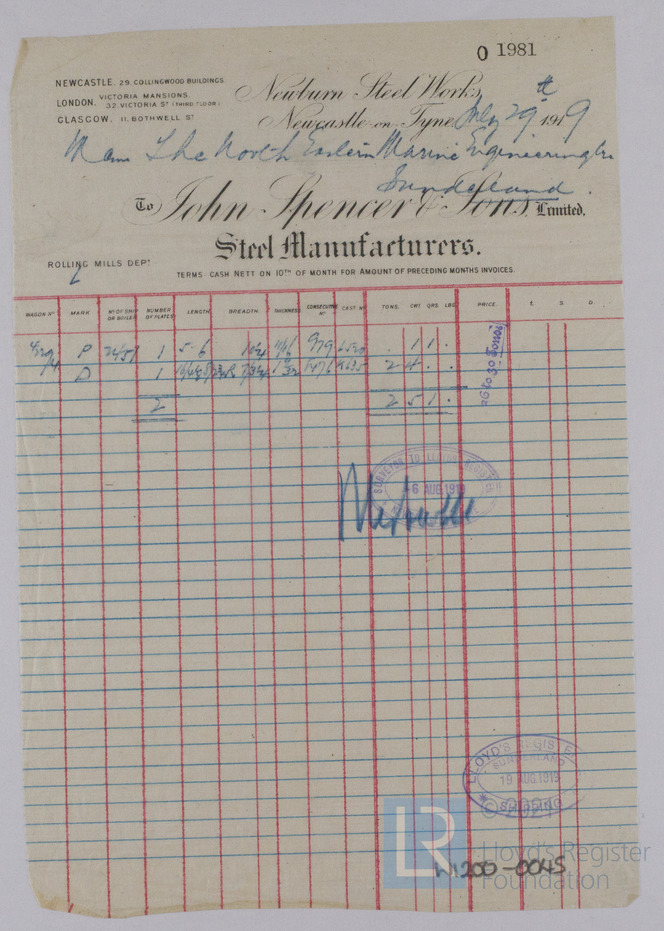 0 1981
NEWCASTLE. 29. COLLINGWOOD BUILDINGS
LONDON. VICTORIA MANSIONS.
32. VICTORIA ST (THIRD FLOOR)
GLASGOW. 11. BOTHWELL ST
Newburn Steel Works,
Newcastle-on-Tyne, July 29th 1919
The North Eastern Marine Engineering Co
Sunderland.
To John Spencer & Sons, Limited.
Steel Manufacturers.
ROLLING MILLS DEPT
TERMS: CASH NETT ON 10TH OF MONTH FOR AMOUNT OF PRECEDING MONTHS INVOICES.
WAGON No MARK No OF SHIP OR BOILER NUMBER OF PLATES LENGTH BREADTH THICKNESS CONSECUTIVE No CAST No TONS. CWT. QRS. LBS. PRICE. £ S. D.
P 1 5-6 979 . 1 1 .
D 1 1476 2 4 . .
2 2 5 1 .
26 to 30 TONS
SURVEYOR TO LLOYD'S REGISTER
-6 AUG 1919
LLOYD'S REGISTER
SUNDERLAND
19 AUG. 1919
SHIPPING
© 2021
LR
Lloyd's Register
Foundation
W1200-0045